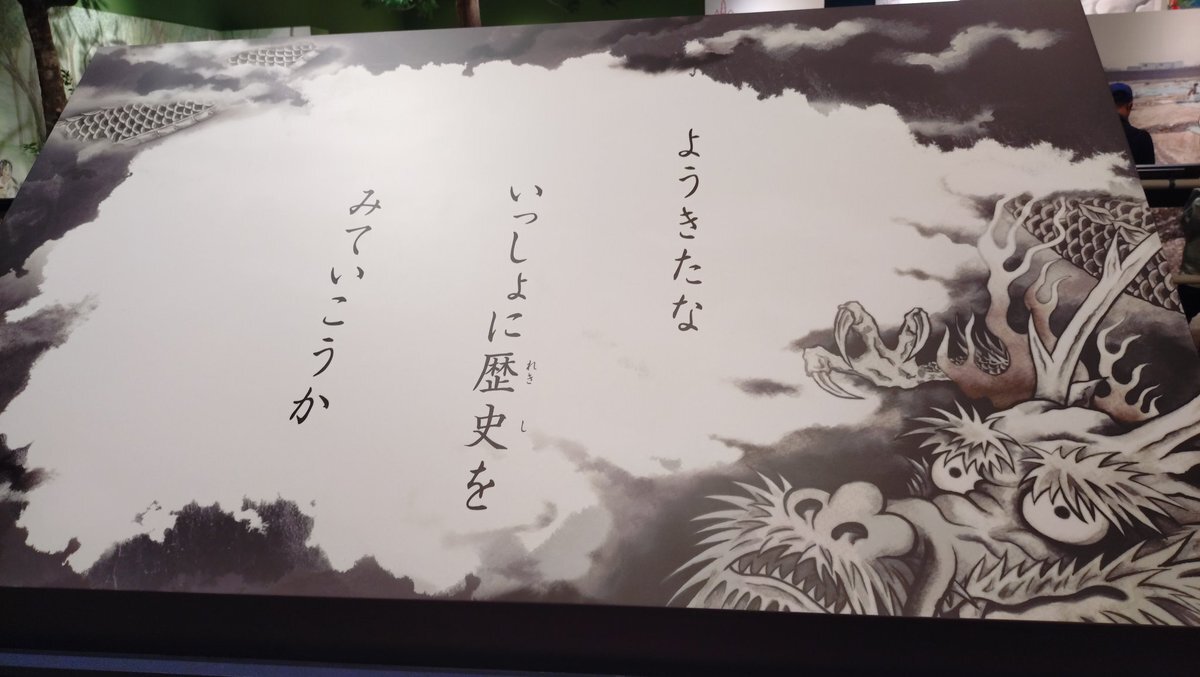 ようきたな
いっしょに歴史を
れきし
みていこうか